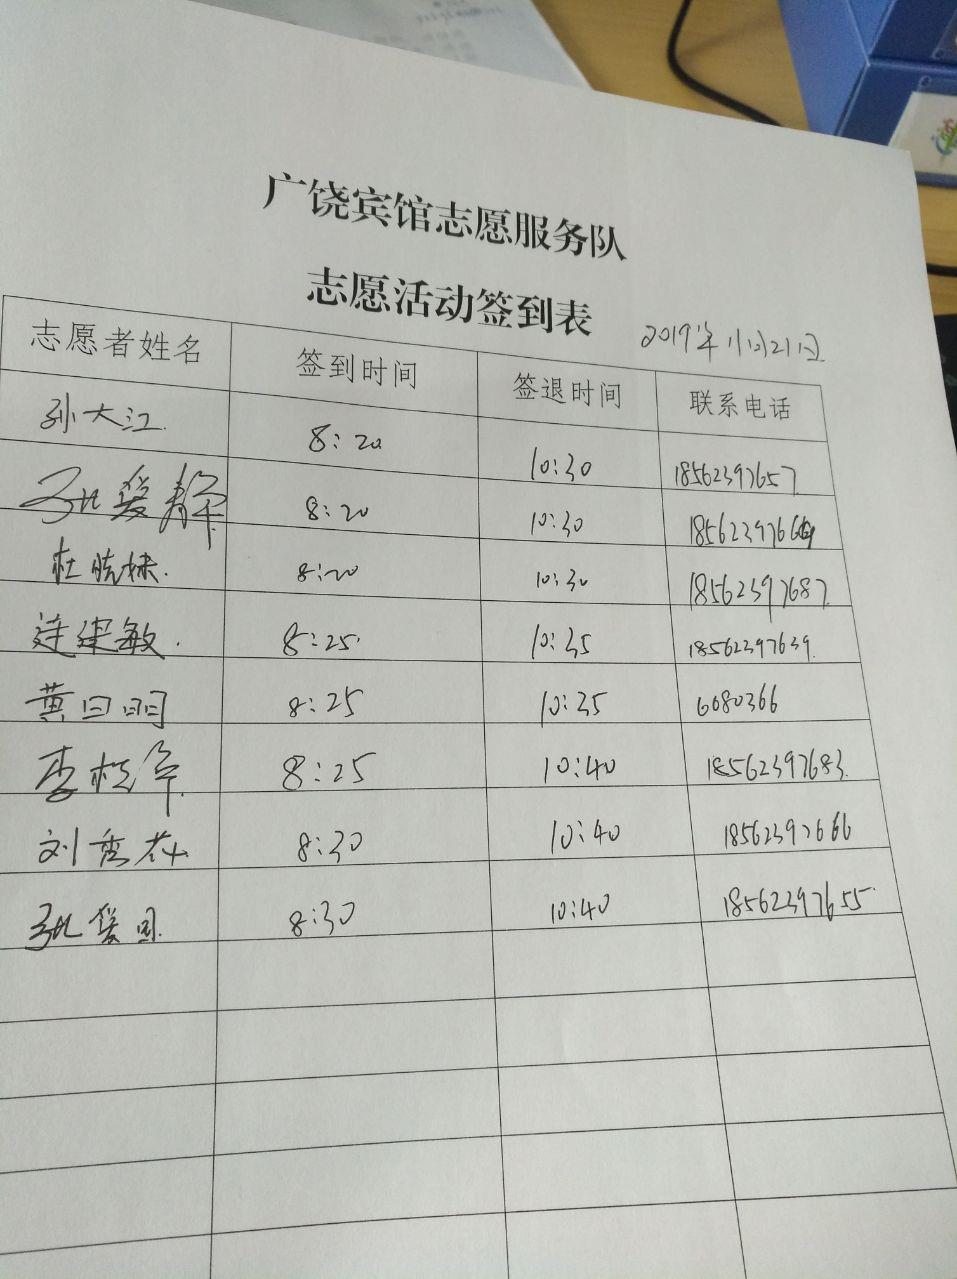 广饶宾馆志愿服务队
志愿活动签到表
2019年11月21日
志愿者姓名 签到时间 签退时间 联系电话
孙大江 8:20 10:30 18562397657
张爱静 8:20 10:30
杜晓妹 8:20 10:30 18562397687
连建敏 8:25 10:35 18562397639
黄日明 8:25 10:35 6680366
李桂军 8:25 10:40 18562397683
刘秀花 8:30 10:40 18562397666
张爱国 8:30 10:40 18562397655